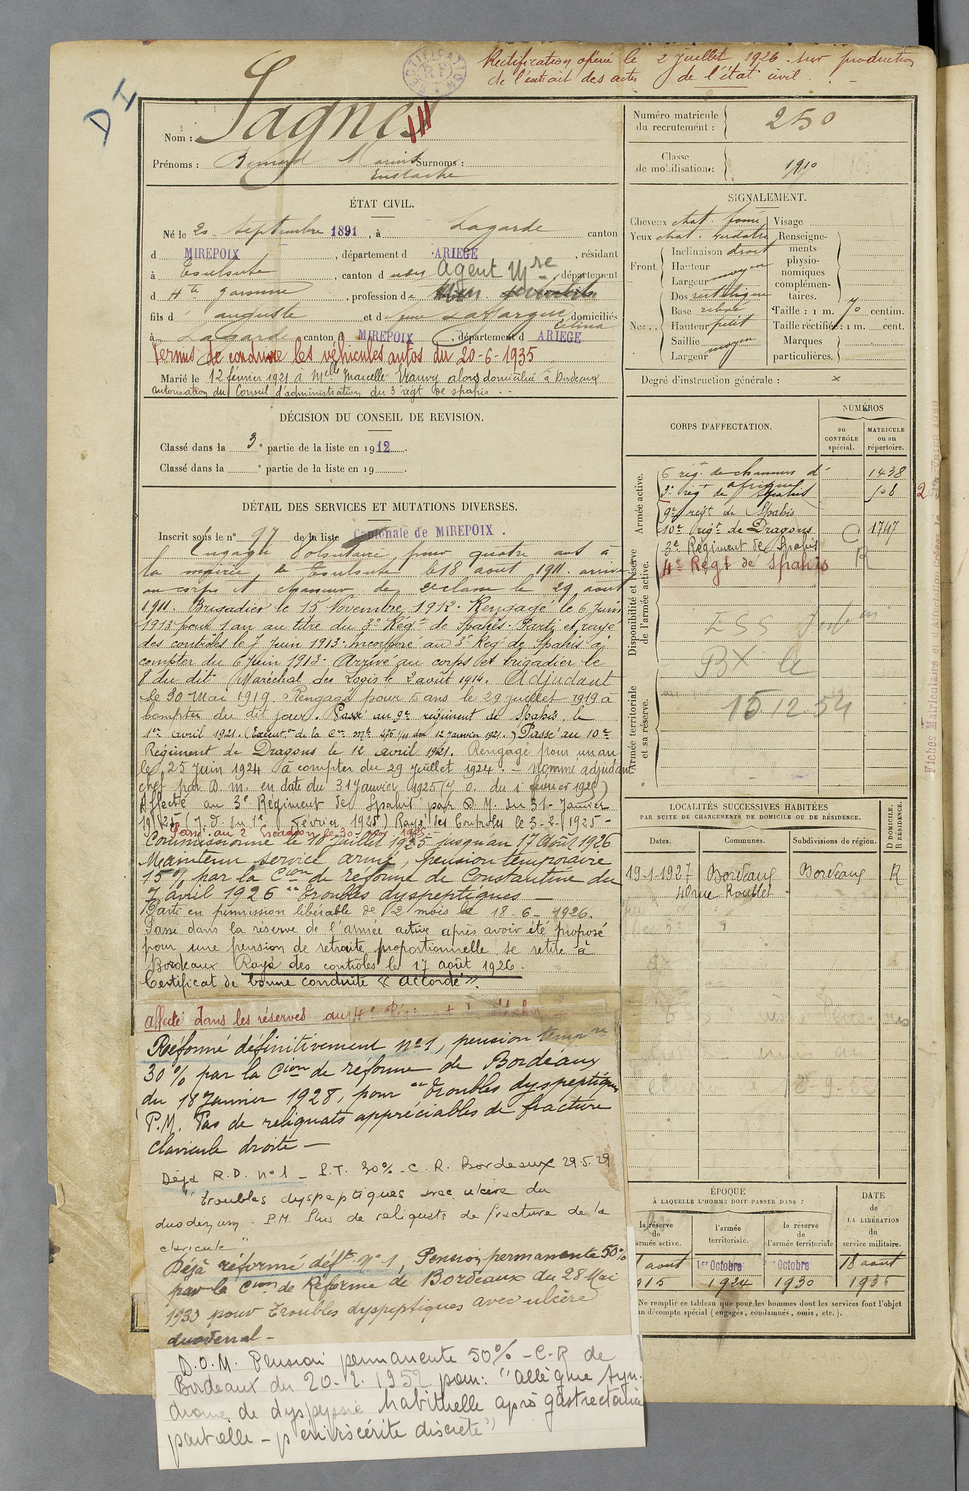 Rectification opéré le 2 juillet 1926 sur production
de l'extrait des actes de l'état civil.
RECTIFICATION
D I
Nom : Lagnes
Prénoms : Bernard Marius Surnoms :
Eustache
ÉTAT CIVIL.
Né le 20 septembre 1891, à Lagarde canton
d MIREPOIX, département d ARIÈGE, résidant
à Toulouse, canton d Agent Mre, département
d Hte Garonne, profession de
fils d auguste et d Lafargue domiciliés
Célina
à Lagarde canton MIREPOIX, département d ARIÈGE
Permis de conduire les véhicules autos du 20-6-1935
Marié le 12 février 1921 à Melle Marcelle alors domicilié à Bordeaux
autorisation du Conseil d'administration du 3e régt de spahis.
DÉCISION DU CONSEIL DE REVISION.
Classé dans la 3e partie de la liste en 1912.
Classé dans la e partie de la liste en 19
DÉTAIL DES SERVICES ET MUTATIONS DIVERSES.
Inscrit sous le n° 97 de la liste Cantonale de MIREPOIX.
Engagé Volontaire pour quatre ans à
la mairie de Toulouse le 18 aout 1911. arrivé
au corps et chasseur de 2e classe le 29 aout
1911. Brigadier le 15 Novembre 1912. Rengagé le 6 Juin
1913 pour 1 an au titre du 3e Régt de Spahis. Parti et rayé
des contrôles le 7 Juin 1913. Incorporé au 3e Rég de Spahis à
compter du 6 Juin 1913. Arrivé au corps et brigadier le
8 du dit Maréchal des Logis le 2 août 1914. Adjudant
le 30 Mai 1919. Rengagé pour 5 ans le 29 juillet 1919 à
compter du dit jour. Passé au 9e régiment de Spahis, le
1er avril 1921. (Exécut.on de la Con mle 475 1/11 du 12 janvier 1921.) Passé au 10e
Régiment de Dragons le 12 avril 1921. Rengagé pour un an
le 25 Juin 1924 à compter du 29 Juillet 1924. - Nommé adjudant
chef par D. M. en date du 31 Janvier 1925 (J. O. du 1er février 1925)
Affecté au 3e Régiment de Spahis par D. M. du 31 Janvier
1925 (J.O. du 1er Février 1925) Rayé des Contrôles le 3-2-1925 -
Passé au 2e Escadron le 30
Commissionné le 10 juillet 1925 jusqu'au 17 Août 1926
Maintenu service armé, pension temporaire
15% par la Cion de réforme de Constantine du
7 avril 1926 "troubles dyspeptiques" -
Parti en permission libérable de 2 mois le 18-6-1926.
Passé dans la réserve de l'armée active après avoir été proposé
pour une pension de retraite proportionnelle se retire à
Bordeaux Rayé des contrôles le 17 août 1926.
Certificat de bonne conduite « accordé ».
Affecté dans les réserves au 4e
Réformé définitivement n°1, pension tempre
30% par la Cion de réforme de Bordeaux
du 18 Janvier 1928, pour "troubles dyspeptiques
P.M. Pas de reliquats appréciables de fracture
clavicule droite -
Déjà R.D. n°1 - P.T. 30% - C.R. Bordeaux 29.5.29
"Troubles dyspeptiques avec ulcère du
duodenum. P.M. Plus de reliquats de fracture de la
clavicule"
Déjà réformé déft n°1, Pension permanente 50%
par la Cion de Réforme de Bordeaux du 28 Mai
1933 pour troubles dyspeptiques avec ulcère
duodenal -
D.O.M. Pension permanente 50% - C.R de
Bordeaux du 20.2.1952 pour: "allègue syn-
drome de dyspepsie habituelle après gastrectomie
partielle - périviscérite discrète"
Numéro matricule
du recrutement : 250
Classe
de mobilisation : 1910
SIGNALEMENT.
Cheveux chat. foncé
Yeux chat. verdâtre
Front. Inclinaison droit
Hauteur moyen
Largeur
Dos rectiligne
Nez.. Base
Hauteur petit
Saillie
Largeur moyen
Visage
Renseigne-
ments
physio-
nomiques
complémen-
taires.
Taille : 1 m. 70 centim.
Taille rectifiée : 1 m. cent.
Marques
particulières.
Degré d'instruction générale : x
CORPS D'AFFECTATION.
NUMÉROS
au
CONTRÔLE
spécial.
MATRICULE
ou au
répertoire.
Armée active.
6e régt de chasseurs d'afrique 1438
3e rég de Spahis 508
9e régt de Spahis
10e régt de Dragons C 1747
Disponibilité et réserve
de l'armée active.
3e Régiment de Spahis
4e Régt de Spahis R
BX le
Armée territoriale
et sa réserve.
15.12.54
LOCALITÉS SUCCESSIVES HABITÉES
PAR SUITE DE CHANGEMENTS DE DOMICILE OU DE RÉSIDENCE.
Dates.
Communes.
Subdivisions de région.
D DOMICILE.
R RÉSIDENCE.
19-1-1927 Bordeaux Bordeaux R
40 rue Roullet
ÉPOQUE
À LAQUELLE L'HOMME DOIT PASSER DANS :
la réserve
de
l'armée active.
l'armée
territoriale.
la réserve
de
l'armée territoriale
DATE
de
LA LIBÉRATION
du
service militaire.
1 aout 1er Octobre 1er Octobre 18 août
1915 1924 1930 1935
Ne remplir ce tableau que pour les hommes dont les services font l'objet
d'un décompte spécial (engagés, condamnés, omis, etc.)